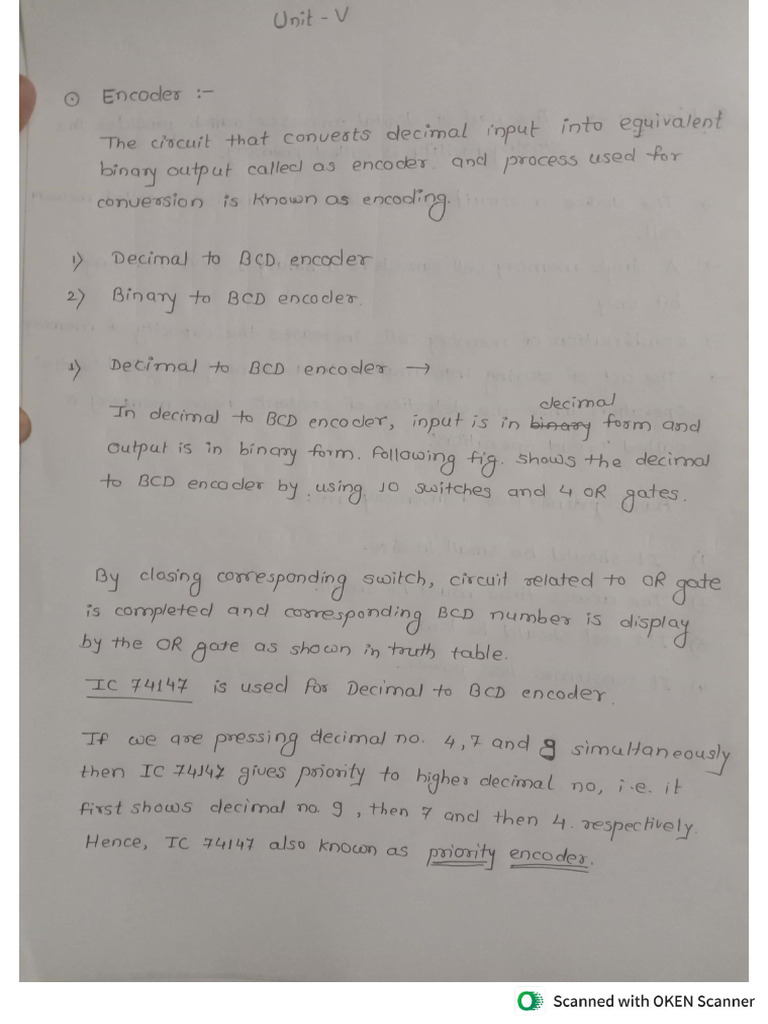 Unit - V
⊙ Encoder :-
The circuit that converts decimal input into equivalent
binary output called as encoder. and process used for
conversion is known as encoding.
1) Decimal to BCD encoder
2) Binary to BCD encoder.
1) Decimal to BCD encoder →
decimal
In decimal to BCD encoder, input is in binary form and
output is in binary form. Following fig. shows the decimal
to BCD encoder by using 10 switches and 4 OR gates.
By closing corresponding switch, circuit related to OR gate
is completed and corresponding BCD number is display
by the OR gate as shown in truth table.
IC 74147 is used for Decimal to BCD encoder.
If we are pressing decimal no. 4,7 and 9 simultaneously
then IC 74147 gives priority to higher decimal no, i.e. it
first shows decimal no. 9, then 7 and then 4. respectively.
Hence, IC 74147 also known as priority encoder.
Scanned with OKEN Scanner